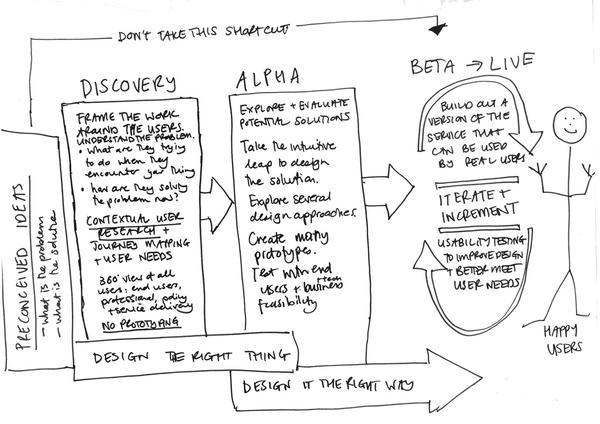 DON'T TAKE THIS SHORTCUT
PRECONCEIVED IDEAS
- what is the problem
- what is the solution
DISCOVERY
FRAME THE WORK
AROUND THE USERS.
UNDERSTAND THE PROBLEM.
• what are they trying
to do when they
encounter your thing
• how are they solving
the problem now?
CONTEXTUAL USER
RESEARCH +
JOURNEY MAPPING
+ USER NEEDS
360° view of all
users: end users,
professional, policy
+ service delivery
NO PROTOTYPING
ALPHA
EXPLORE + EVALUATE
POTENTIAL SOLUTIONS
Take the intuitive
leap to design
the solution.
Explore several
design approaches.
Create many
prototypes.
Test with end
users + business
+ tech
feasibility
DESIGN THE RIGHT THING
DESIGN IT THE RIGHT WAY
BETA → LIVE
BUILD OUT A
VERSION OF THE
SERVICE THAT
CAN BE USED
BY REAL USERS
ITERATE +
INCREMENT
USABILITY TESTING
TO IMPROVE DESIGN
+ BETTER MEET
USER NEEDS
HAPPY
USERS